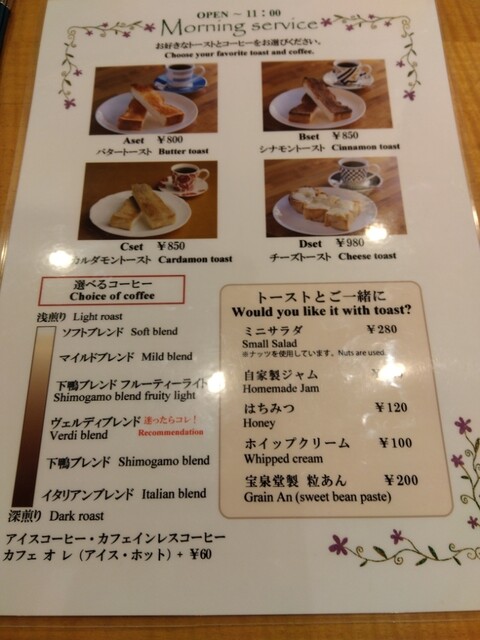 OPEN ~ 11:00
Morning service
お好きなトーストとコーヒーをお選びください。
Choose your favorite toast and coffee.
Aset ¥800
バタートースト Butter toast
Bset ¥850
シナモントースト Cinnamon toast
Cset ¥850
カルダモントースト Cardamon toast
Dset ¥980
チーズトースト Cheese toast
選べるコーヒー
Choice of coffee
浅煎り Light roast
ソフトブレンド Soft blend
マイルドブレンド Mild blend
下鴨ブレンド フルーティーライト
Shimogamo blend fruity light
ヴェルディブレンド 迷ったらコレ!
Verdi blend Recommendation
下鴨ブレンド Shimogamo blend
イタリアンブレンド Italian blend
深煎り Dark roast
アイスコーヒー・カフェインレスコーヒー
カフェ オ レ(アイス・ホット)+ ¥60
トーストとご一緒に
Would you like it with toast?
ミニサラダ ¥280
Small Salad
※ナッツを使用しています。Nuts are used.
自家製ジャム
Homemade Jam
はちみつ ¥120
Honey
ホイップクリーム ¥100
Whipped cream
宝泉堂製 粒あん ¥200
Grain An (sweet bean paste)